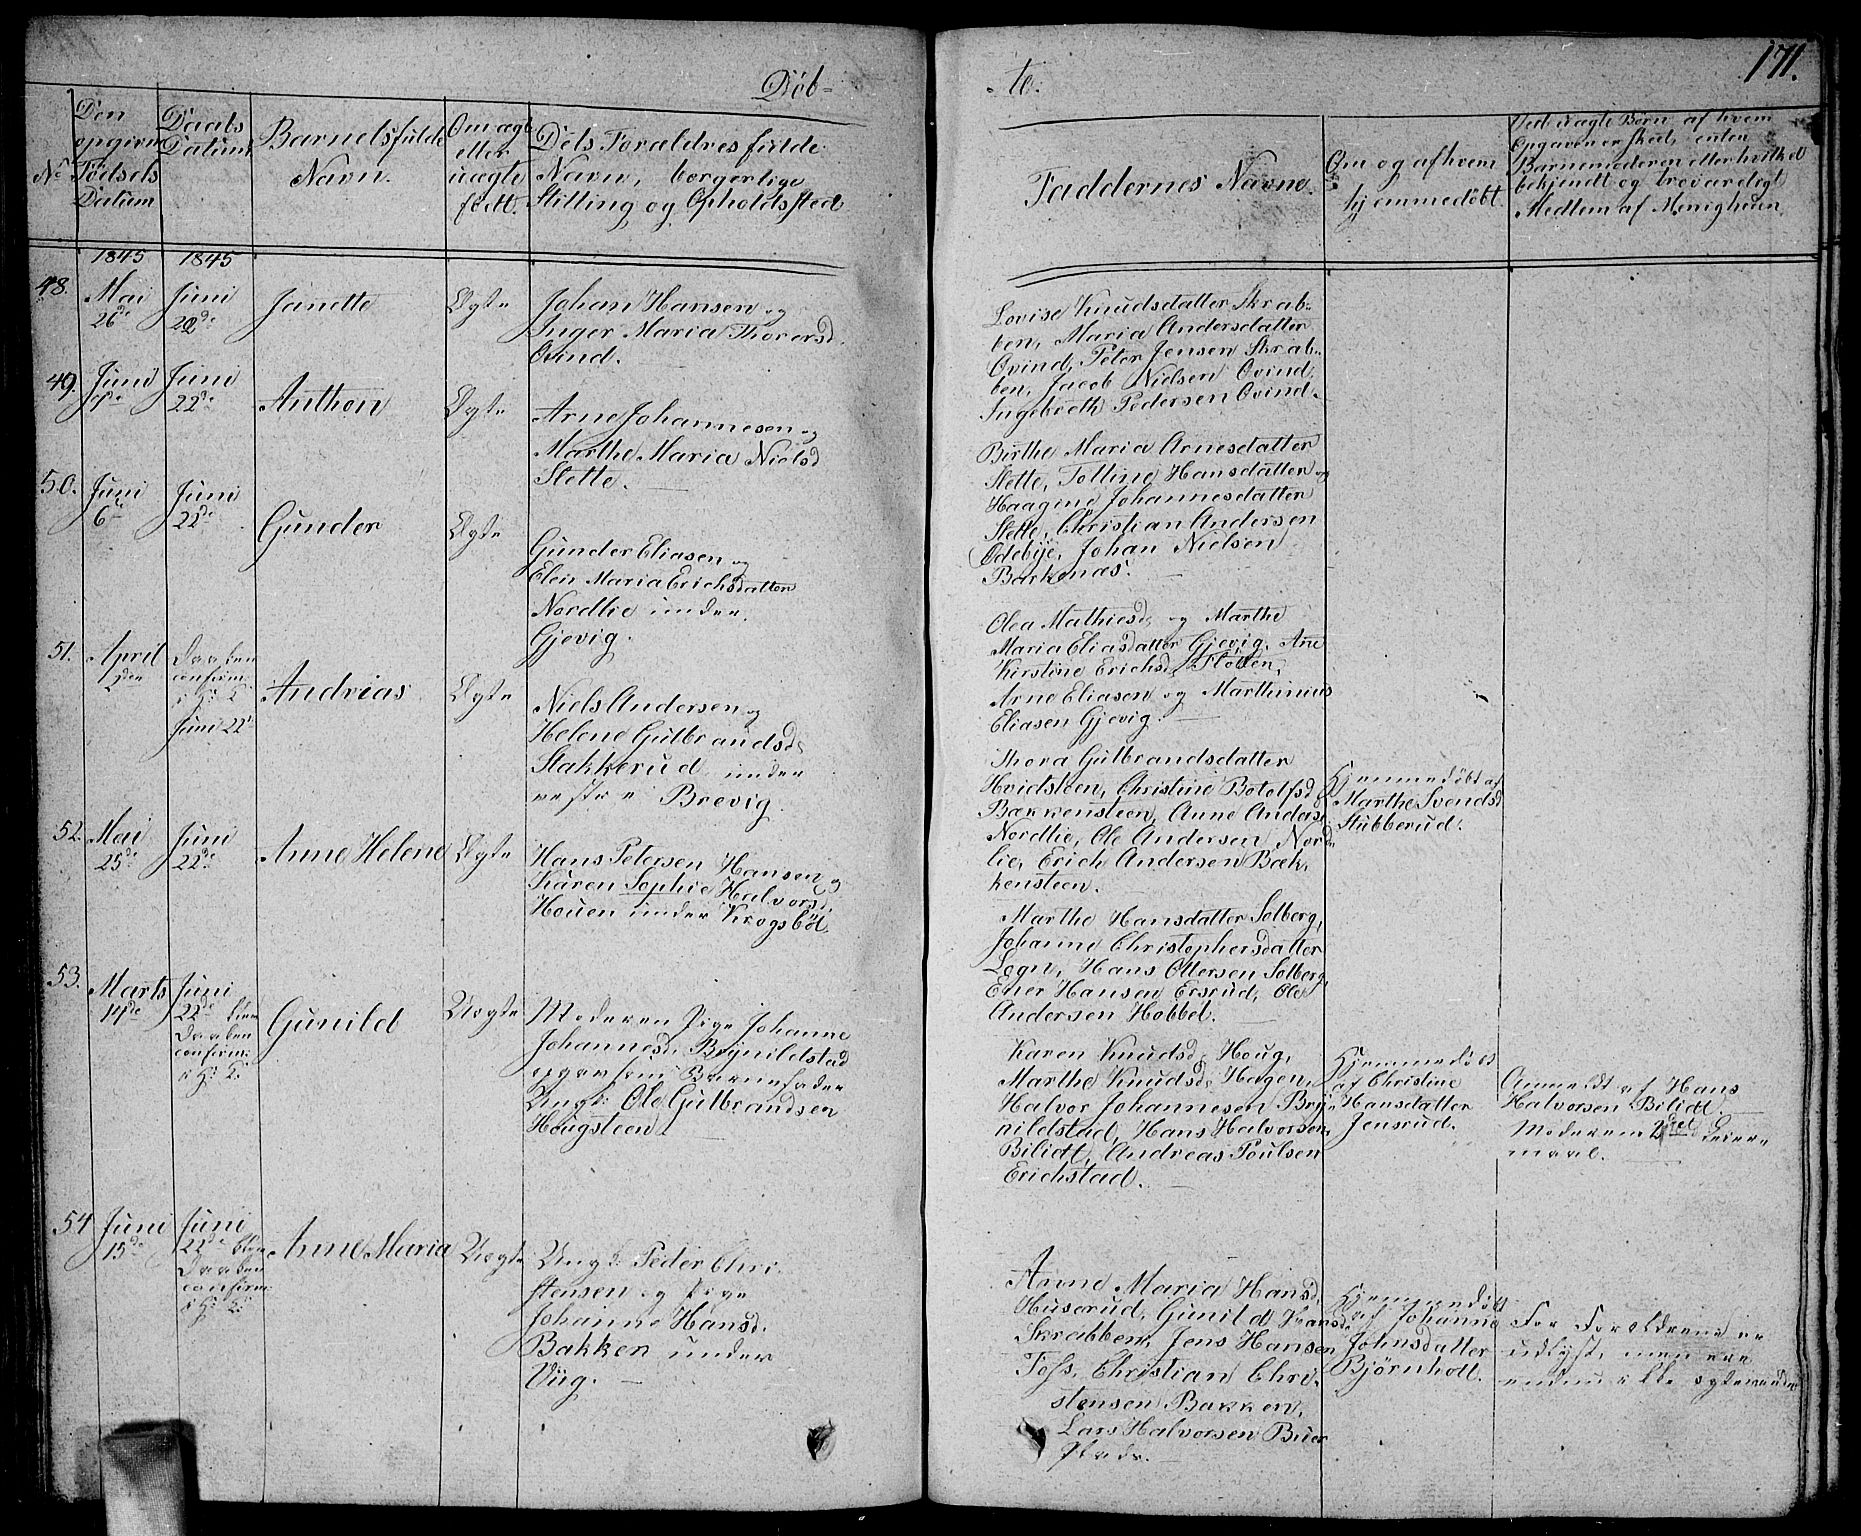 Döb-
te.
171.
No
Den
opgivne
Fødsels
Datum
Daabs
Datum
Barnets fulde
Navn.
Om ægte
eller
uægte
födt.
Dets Forældres fulde
Navn, borgerlige
Stilling og Opholdssted
Faddernes Navne.
Om og af hvem
hjemmedöbt.
Ved uægte Børn af hvem
Opgaven er skeet, enten
Barnemoderen eller hvilket
bekjendt og troværdigt
Medlem af Menigheden
1845
1845
48.
Mai
26de
Juni
22de
Janette
Ægte
Johan Hansen og
Inger Maria Thorersd.
Ovind.
Lovise Knudsdatter Skrab-
ben, Maria Andersdatter
Ovind, Peter Jensen Skrab-
ben, Jacob Nielsen Ovind,
Ingebreth Pedersen Ovind.
49.
Juni
Juni
22de
Anthon
Ægte
Arne Johannesen og
Marthe Maria Nielsd
Slette.
Birthe Maria Arnesdatter
Slette, Tolline Hansdatter og
Haagine Johannesdatter
Slette, Christian Andersen
Odebye, Johan Nielsen
Barkenæs.
50.
Juni
6te
Juni
22de
Gunder
Ægte
Gunder Eliasen og
Elen Maria Erichsdatter
Nordlie under
Gjøvig.
Olea Mathiesd. og Marthe
Maria Eliasdatter Gjøvig, Ane
Kirstine Erichsd. Slotten,
Arne Eliasen og Marthinius
Eliasen Gjøvig.
51.
April
Daaben
confirm.
i H: K:
Juni 22de
Andreas
Ægte
Niels Andersen og
Helene Gulbrandsd.
Stakkerud under
vestre Brevig.
Thora Gulbrandsdatter
Hvidsteen, Christine Botolfsd
Bækkensteen, Anne Andersd
Nordlie, Ole Andersen Nord-
lie, Erich Andersen Bæk-
kensteen.
Hjemmedöbt af
Marthe Svendsd
Stubberud.
52.
Mai
25de
Juni
22de
Anne Helene
Ægte
Hans Petersen Hansen og
Karen Sophie Halvorsd.
Houen under Krogsböl.
Marthe Hansdatter Solberg,
Johanne Christophersdatter
Logn, Hans Ottersen Solberg,
Ener Hansen Ersrud, Ole
Andersen Hobbel.
53.
Marts
14de
Juni
22de blev
Daaben
confirm:
i H: K:
Gunild
Uægte
Moderen Pige Johanne
Johannesd. Brynildstad
opgav som Barnefader
Ungk: Ole Gulbrandsen
Hougsteen.
Karen Knudsd. Houg,
Marthe Knudsd. Hagen,
Halvor Johannesen Bryn-
nildstad, Hans Halvorsen
Bilidt, Andreas Poulsen
Erichstad.
Hjemmedöbt
af Christine
Hansdatter
Jensrud.
Anmeldt af Hans
Halvorsen Bilidt.
Moderens 2det Leier-
maal.
54
Juni
15de
Juni
22de blev
Daaben
confirm:
i H: K:
Anne Maria
Uægte
Ungk: Peder Chri-
stensen og Pige
Johanne Hansd.
Bakken under
Viig.
Anne Maria Hansd.
Huserud, Gunild Hansd.
Skrabben, Jens Hansen
Foss, Christian Chri-
stensen Bakken,
Lars Halvorsen Buer
Hjemmedöbt
af Johanne
Johnsdatter
Björnholt.
For Forældrene er
udlyst, men ere
endnu ikke ægteviede